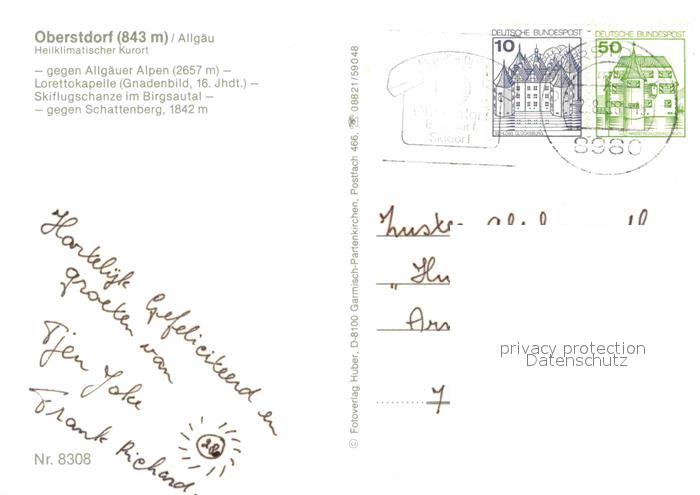 Oberstdorf (843 m) / Allgäu
Heilklimatischer Kurort
— gegen Allgäuer Alpen (2657 m) —
Lorettokapelle (Gnadenbild, 16. Jhdt.) —
Skiflugschanze im Birgsautal —
— gegen Schattenberg, 1842 m
Hartelijk Gefeliciteerd en
groeten van
Tjen Joke
Frank Richard.
28°
Nr. 8308
© Fotoverlag Huber, D-8100 Garmisch-Partenkirchen, Postfach 466, ☎ 08821/59048
DEUTSCHE BUNDESPOST
10
SCHLOSS GLÜCKSBURG
DEUTSCHE BUNDESPOST
50
8980
„Hu
Ar
7
privacy protection
Datenschutz